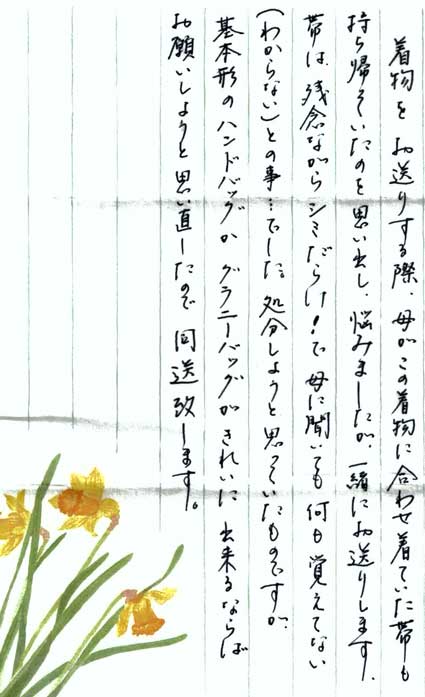 着物を お送りする際、母がこの着物に合わせ着ていた帯も
持ち帰っていたのを思い出し、悩みましたが、一緒にお送りします。
帯は、残念ながらシミだらけ！で母に聞いても何も覚えてない
(わからない)との事…でした。処分しようと思っていたものですが、
基本形のハンドバッグか グラニーバッグがきれいに出来るならば
お願いしようと思い直したので 同送致します。